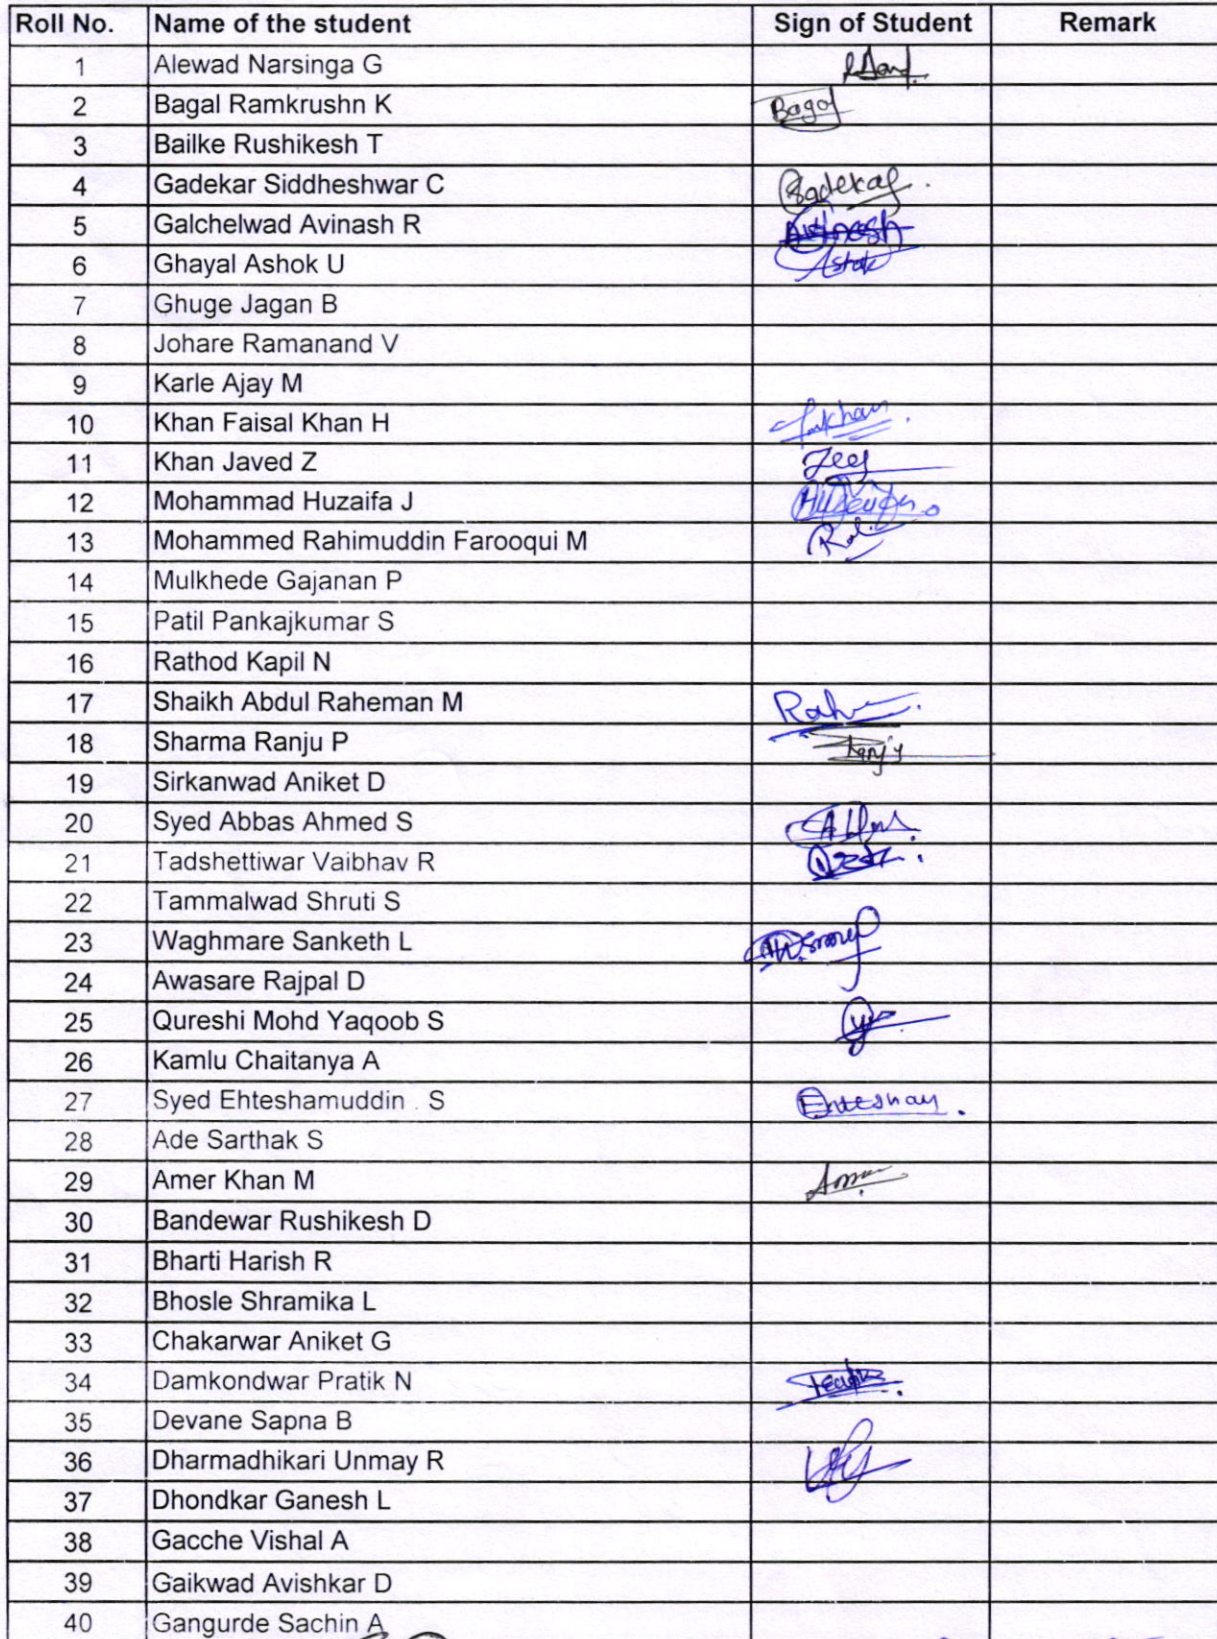 Roll No. Name of the student Sign of Student Remark
1 Alewad Narsinga G
2 Bagal Ramkrushn K Bagal
3 Bailke Rushikesh T
4 Gadekar Siddheshwar C Gadekar
5 Galchelwad Avinash R Avinash
6 Ghayal Ashok U Ashok
7 Ghuge Jagan B
8 Johare Ramanand V
9 Karle Ajay M
10 Khan Faisal Khan H
11 Khan Javed Z
12 Mohammad Huzaifa J
13 Mohammed Rahimuddin Farooqui M
14 Mulkhede Gajanan P
15 Patil Pankajkumar S
16 Rathod Kapil N
17 Shaikh Abdul Raheman M
18 Sharma Ranju P
19 Sirkanwad Aniket D
20 Syed Abbas Ahmed S
21 Tadshettiwar Vaibhav R
22 Tammalwad Shruti S
23 Waghmare Sanketh L
24 Awasare Rajpal D
25 Qureshi Mohd Yaqoob S
26 Kamlu Chaitanya A
27 Syed Ehteshamuddin . S
28 Ade Sarthak S
29 Amer Khan M
30 Bandewar Rushikesh D
31 Bharti Harish R
32 Bhosle Shramika L
33 Chakarwar Aniket G
34 Damkondwar Pratik N
35 Devane Sapna B
36 Dharmadhikari Unmay R
37 Dhondkar Ganesh L
38 Gacche Vishal A
39 Gaikwad Avishkar D
40 Gangurde Sachin A